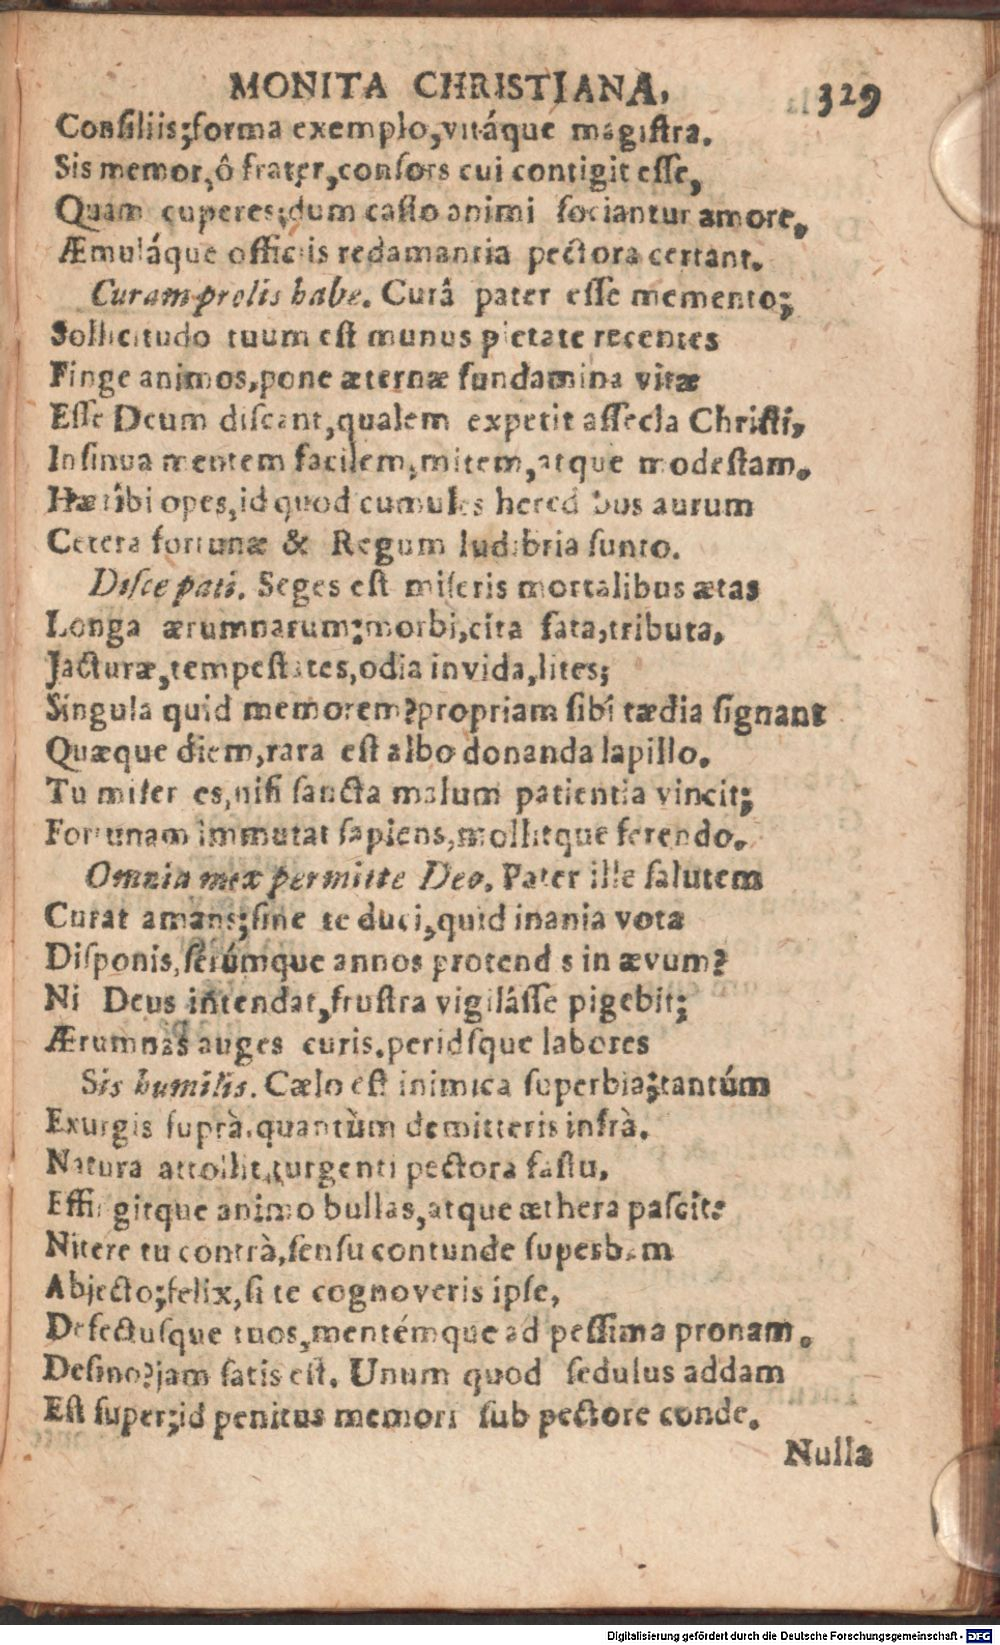 MONITA CHRISTIANA, 329
Consiliis;forma exemplo,vitáque magistra.
Sis memor,ô frater,consors cui contigit esse,
Quam cuperes;dum casto animi sociantur amore,
Æmuláque officiis redamantia pectora certant.
Curam prolis habe. Curâ pater esse memento;
Sollicitudo tuum est munus pietate recentes
Finge animos,pone æternæ fundamina vitæ
Esse Deum discant,qualem expetit assecla Christi,
Insinua mentem facilem,mitem,atque modestam.
Hæ tibi opes,id quod cumules heredibus aurum
Cetera fortunæ & Regum ludibria sunto.
Disce pati. Seges est miseris mortalibus ætas
Longa ærumnarum;morbi,cita fata,tributa,
Jacturæ,tempestates,odia invida,lites;
Singula quid memorem?propriam sibi tædia signant
Quæque diem,rara est albo donanda lapillo.
Tu miser es,nisi sancta malum patientia vincit;
Fortunam immutat sapiens,mollitque ferendo.
Omnia mex permitte Deo. Pater ille salutem
Curat amans;sine te duci,quid inania vota
Disponis,serúmque annos protendis in ævum?
Ni Deus intendat,frustra vigilâsse pigebit;
Ærumnas auges curis.peridsque labores
Sis humilis. Cælo est inimica superbia;tantúm
Exurgis suprà.quantùm demitteris infrà.
Natura attollit,turgenti pectora fastu,
Effingitque animo bullas,atque æthera pascit:
Nitere tu contrà,sensu contunde superbam
Abjecto;felix,si te cognoveris ipse,
Defectusque tuos,mentémque ad pessima pronam.
Desino?jam satis est. Unum quod sedulus addam
Est super;id penitus memori sub pectore conde.
Nulla
Digitalisierung gefördert durch die Deutsche Forschungsgemeinschaft - DFG